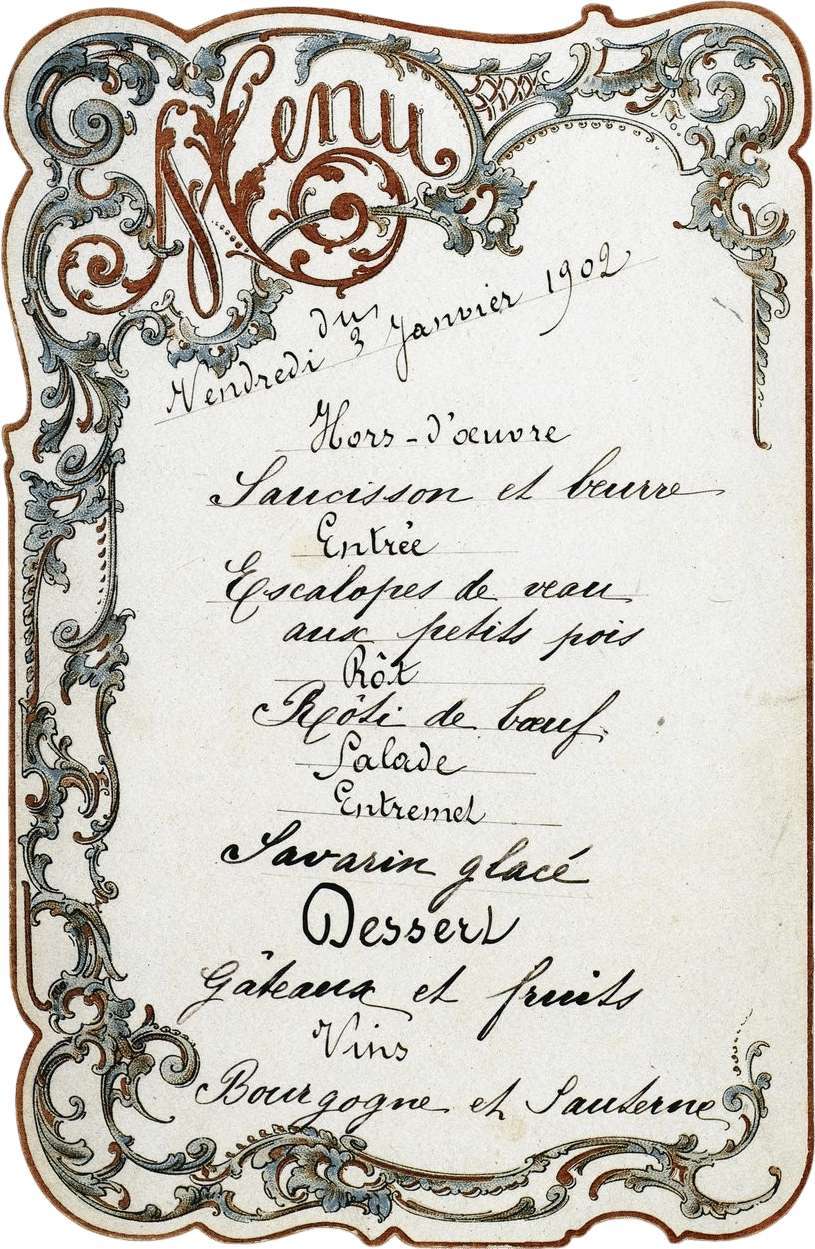 Menu
du
Vendredi 3 Janvier 1902
Hors-d'œuvre
Saucisson et beurre
Entrée
Escalopes de veau
aux petits pois
Rôt
Rôti de bœuf
Salade
Entremet
Savarin glacé
Dessert
Gâteaux et fruits
Vins
Bourgogne et Sauterne